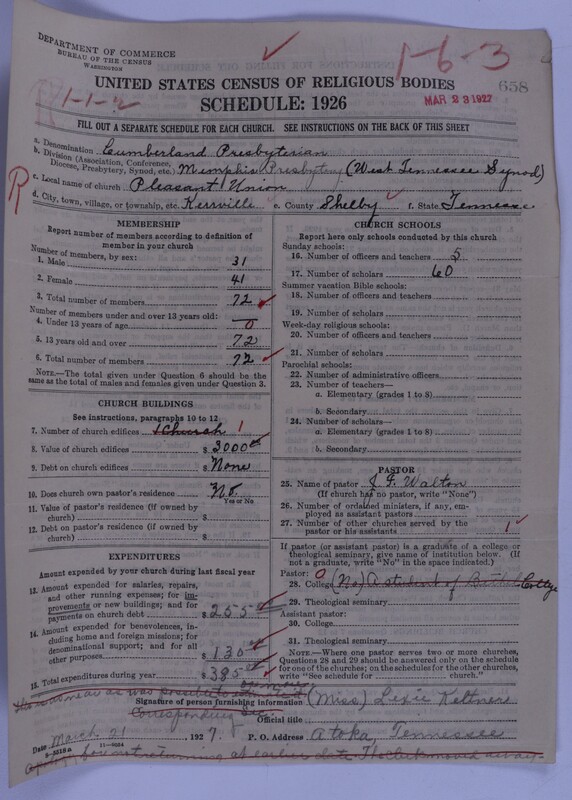 DEPARTMENT OF COMMERCE
BUREAU OF THE CENSUS
WASHINGTON
1-6-3
1-1-2
UNITED STATES CENSUS OF RELIGIOUS BODIES
SCHEDULE: 1926
MAR 23 1927
658
FILL OUT A SEPARATE SCHEDULE FOR EACH CHURCH. SEE INSTRUCTIONS ON THE BACK OF THIS SHEET
R
a. Denomination Cumberland Presbyterian
b. Division (Association, Conference, Diocese, Presbytery, Synod, etc.) Memphis Presbytery (West Tennessee Synod)
c. Local name of church Pleasant Union
d. City, town, village, or township, etc. Kerrville e. County Shelby f. State Tennessee
MEMBERSHIP
Report number of members according to definition of
member in your church
Number of members, by sex:
1. Male 31
2. Female 41
3. Total number of members 72
Number of members under and over 13 years old:
4. Under 13 years of age 0
5. 13 years old and over 72
6. Total number of members 72
NOTE.—The total given under Question 6 should be the
same as the total of males and females given under Question 3.
CHURCH BUILDINGS
See instructions, paragraphs 10 to 12
7. Number of church edifices 1 Church 1
8. Value of church edifices $ 3000 00
9. Debt on church edifices $ None
10. Does church own pastor's residence No
Yes or No
11. Value of pastor's residence (if owned by
church) $
12. Debt on pastor's residence (if owned by
church) $
EXPENDITURES
Amount expended by church during last fiscal year
13. Amount expended for salaries, repairs,
and other running expenses; for im-
provements or new buildings; and for
payments on church debt $ 255
14. Amount expended for benevolences, in-
cluding home and foreign missions; for
denominational support; and for all
other purposes $ 130
15. Total expenditures during year $ 385
CHURCH SCHOOLS
Report here only schools conducted by this church
Sunday schools:
16. Number of officers and teachers 5
17. Number of scholars 60
Summer vacation Bible schools:
18. Number of officers and teachers
19. Number of scholars
Week-day religious schools:
20. Number of officers and teachers
21. Number of scholars
Parochial schools:
22. Number of administrative officers
23. Number of teachers—
a. Elementary (grades 1 to 8)
b. Secondary
24. Number of scholars—
a. Elementary (grades 1 to 8)
b. Secondary
PASTOR
25. Name of pastor J. F. Walton
(If church has no pastor, write "None")
26. Number of ordained ministers, if any, em-
ployed as assistant pastors
27. Number of other churches served by the
pastor or his assistants 1
If pastor (or assistant pastor) is a graduate of a college or
theological seminary, give name of institution below. (If
not a graduate, write "No" in the space indicated.)
Pastor: 0
28. College (No) A student of Bethel College
29. Theological seminary
Assistant pastor:
30. College
31. Theological seminary
NOTE.—Where one pastor serves two or more churches,
Questions 28 and 29 should be answered only on the schedule
for one of the churches; on the schedules for the other churches,
write "See schedule for church."
as near as was possible
Signature of person furnishing information (Miss) Lexie Keltner
Corresponding Sec.
Official title
Date March 21, 1927. P. O. Address Atoka, Tennessee
11—9024
for not returning at earlier date. The clerk moved away